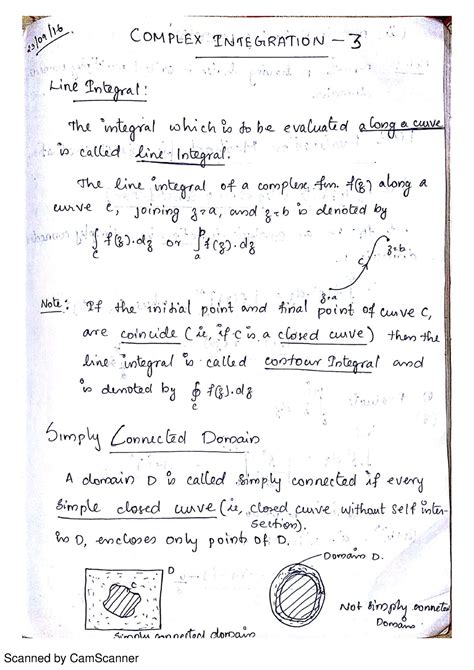 23/09/16
COMPLEX INTEGRATION - 3
Line Integral:
The integral which is to be evaluated along a curve
is called line Integral.
The line integral of a complex fun. f(z) along a
curve C, joining z=a, and z=b is denoted by
∫_C f(z).dz or ∫_a^b f(z).dz
C
z=b
z=a
Note: If the initial point and final point of curve C,
are coincide (ie, if C is a closed curve) then the
line integral is called contour Integral and
is denoted by ∮_C f(z).dz
Simply Connected Domain
A domain D is called simply connected if every
simple closed curve (ie, closed curve without self inter-
section).
in D, encloses only points of D.
D
C
Domain D.
Not simply connected
Domain
Simply connected domain
Scanned by CamScanner